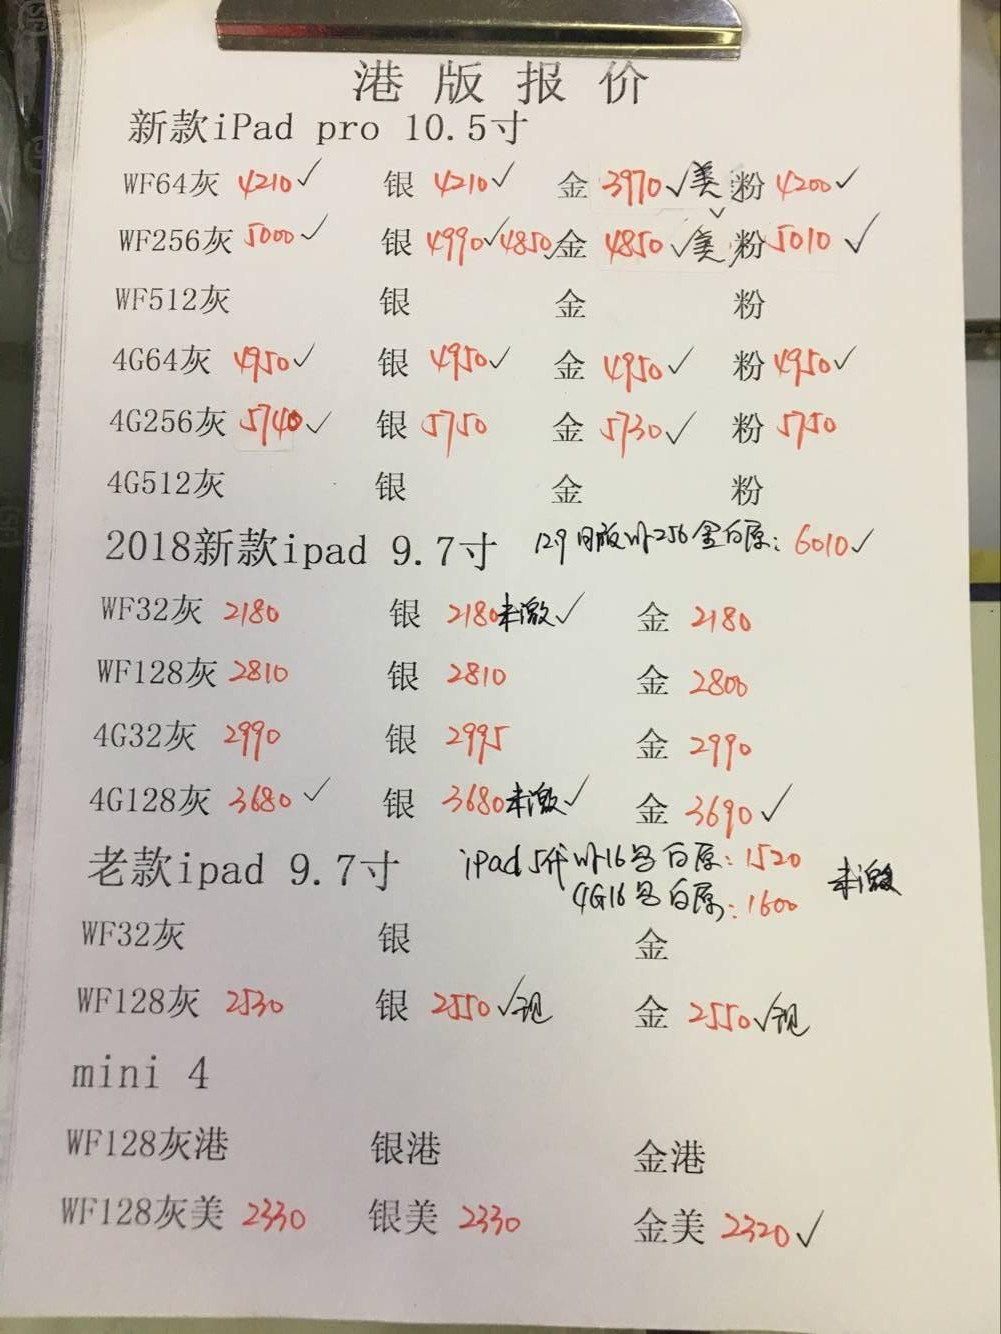 港版报价
新款iPad pro 10.5寸
WF64灰 4210✓ 银 4210✓ 金 3970✓美 粉 4200✓
WF256灰 5000✓ 银 4990✓4850✓ 金 4850✓美 粉 5010✓
WF512灰 银 金 粉
4G64灰 4950✓ 银 4950✓ 金 4950✓ 粉 4950✓
4G256灰 5740✓ 银 5750 金 5730✓ 粉 5750
4G512灰 银 金 粉
2018新款ipad 9.7寸 129 日版Wifi256金白原: 6010✓
WF32灰 2180 银 2180未激✓ 金 2180
WF128灰 2810 银 2810 金 2800
4G32灰 2990 银 2995 金 2990
4G128灰 3680✓ 银 3680未激✓ 金 3690✓
老款ipad 9.7寸 iPad5代Wifi16 白原: 1520
4G16 白原: 1600 未激
WF32灰 银 金
WF128灰 2530 银 2550✓现 金 2550✓现
mini 4
WF128灰港 银港 金港
WF128灰美 2330 银美 2330 金美 2320✓